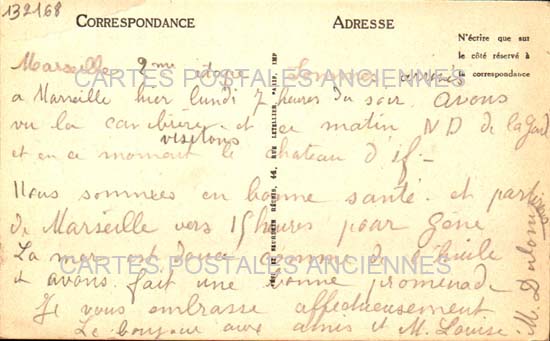 132168
CORRESPONDANCE ADRESSE
N'écrire que sur
le côté réservé à
la correspondance
Marseille 2me étape Sommes arrivés
a Marseille hier lundi 7 heures du soir. avons
vu la et ce matin ND de la Gard
visitons
et en ce moment le chateau d'if.-
Nous sommes en bonne santé et
de Marseille vers 15 heures pour Gêne
La mer est douce comme de l'huile
& avons fait une bonne promenade
Je vous embrasse affectueusement
Le bonjour aux amies et M. Louise.
CARTES POSTALES ANCIENNES
CARTES POSTALES ANCIENNES